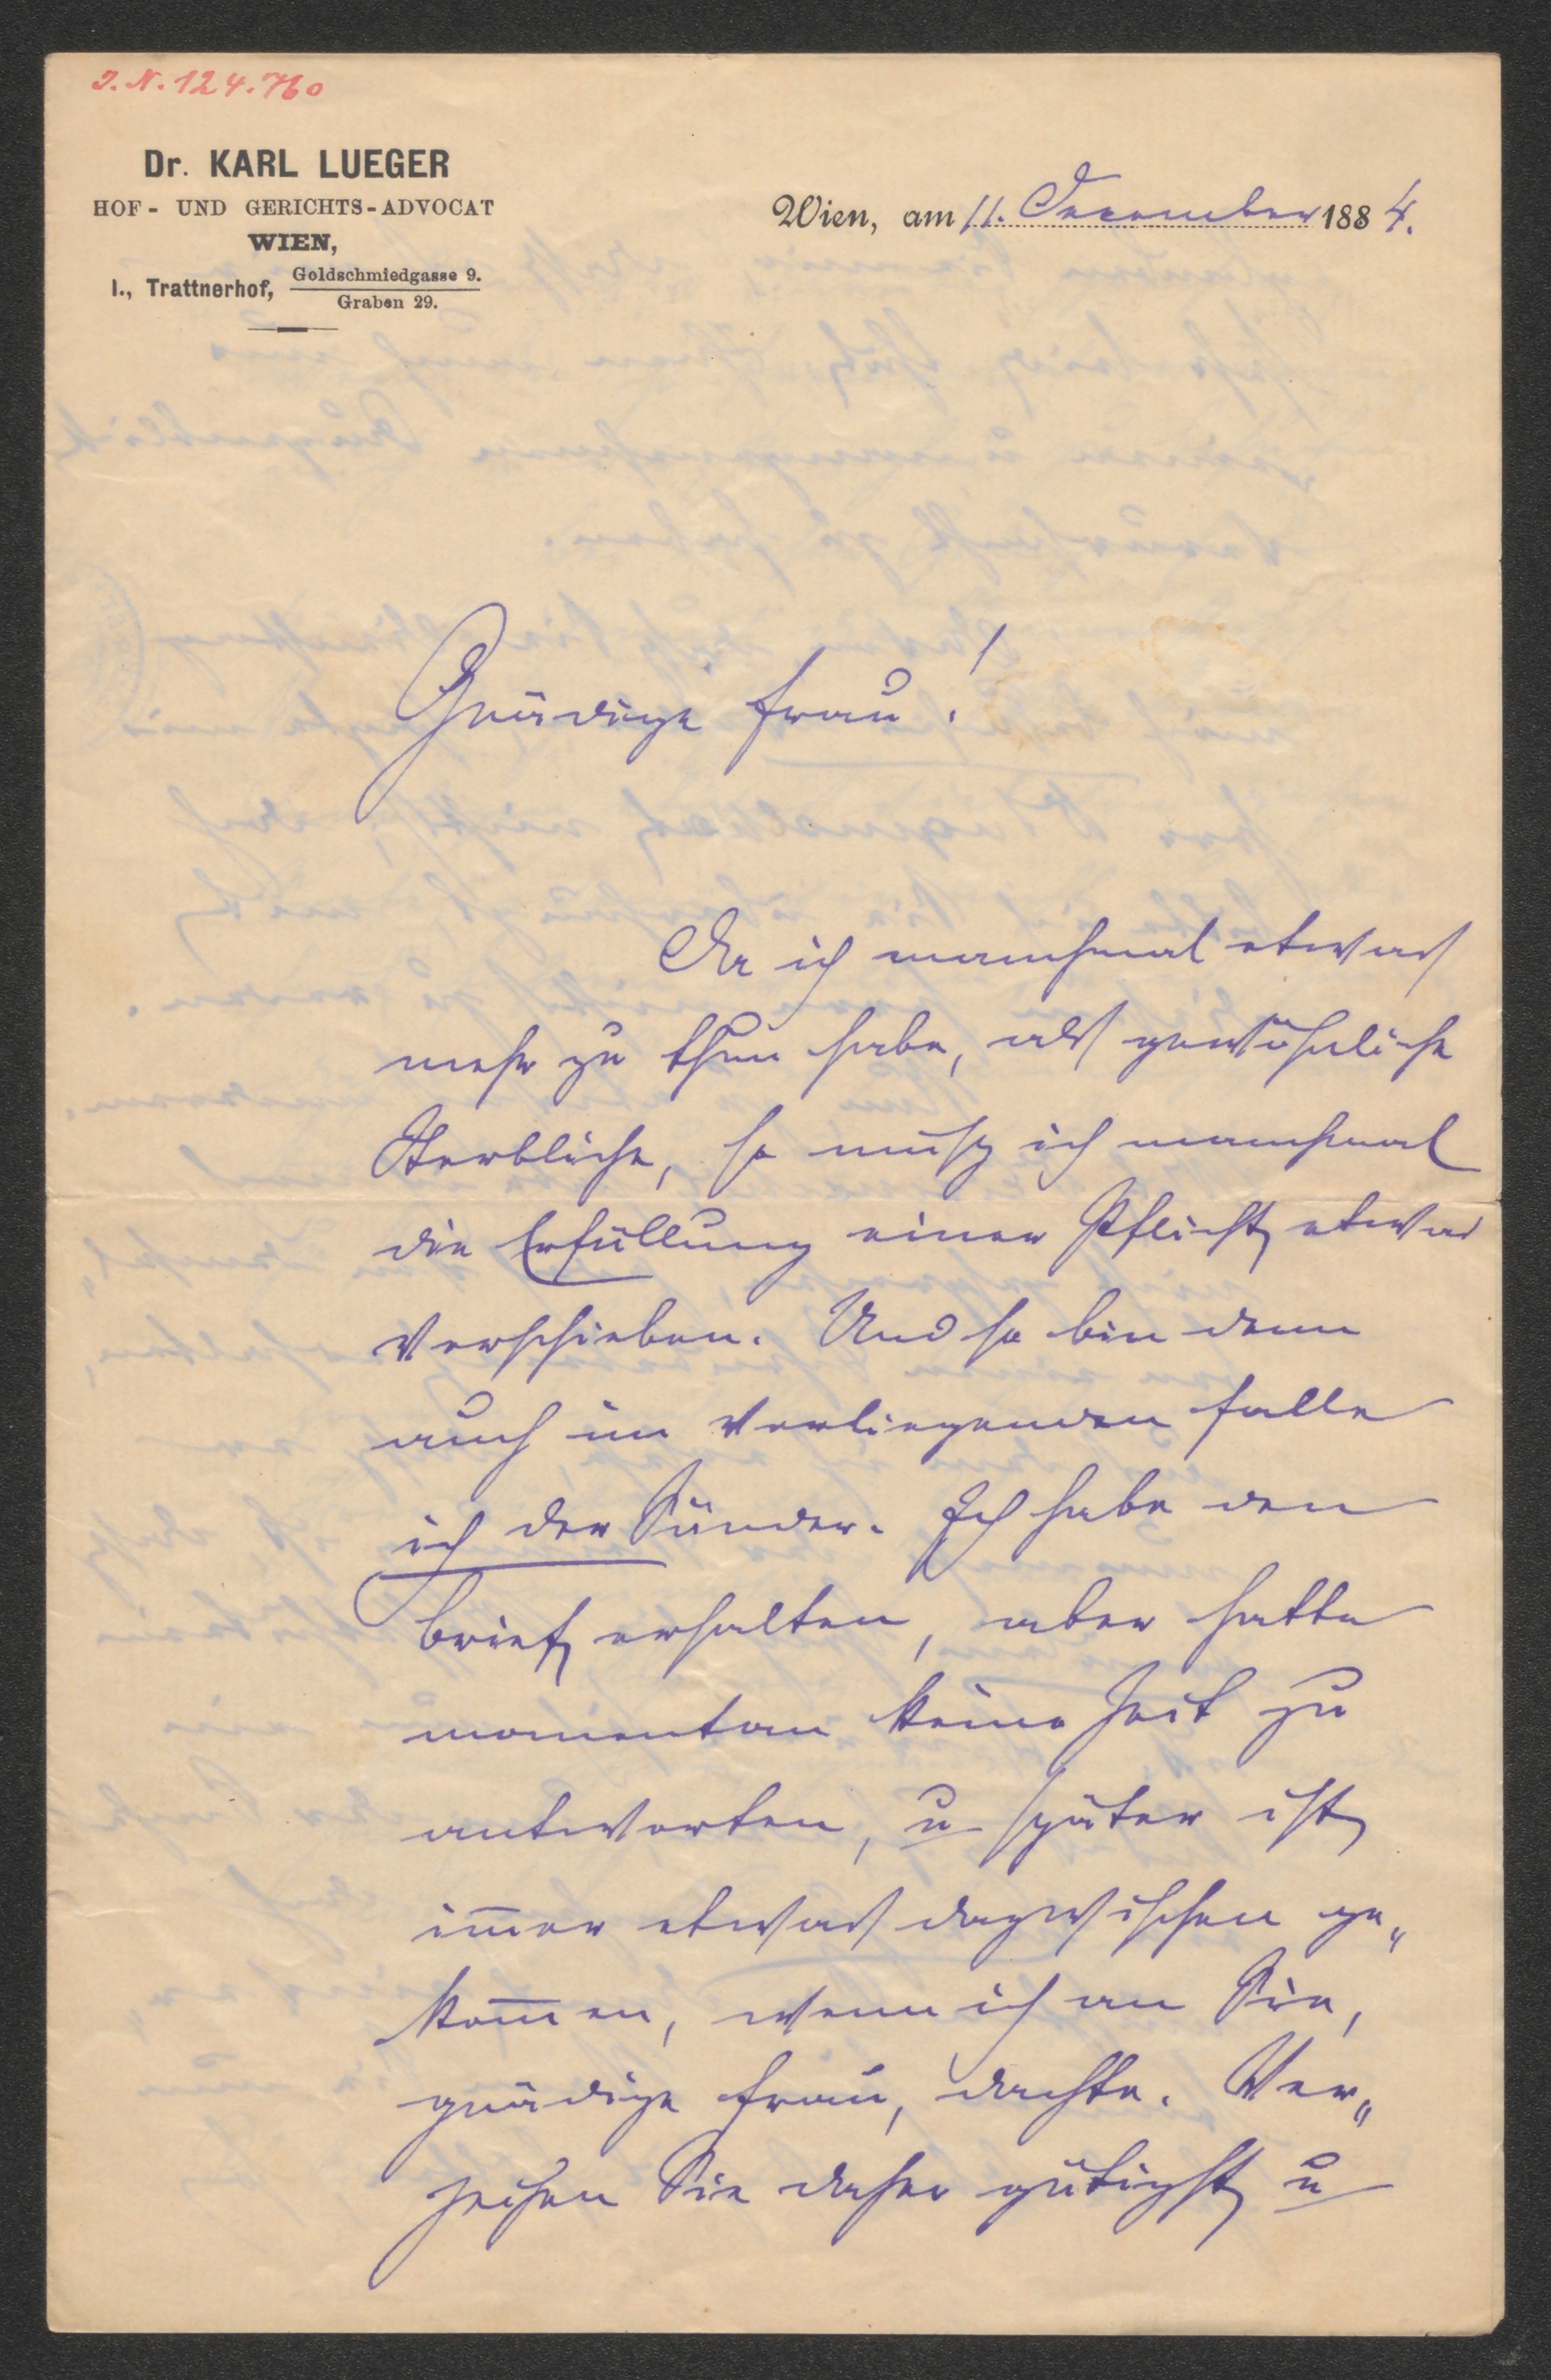 I. N. 124.760
Dr. KARL LUEGER
HOF- UND GERICHTS-ADVOCAT
WIEN,
I., Trattnerhof, Goldschmiedgasse 9.
Graben 29.
Wien, am 11. Dezember 1884.
Gnädige Frau!
Da ich manchmal etwas
mehr zu thun habe, als gewöhnliche
Sterbliche, so muß ich manchmal
die Erfüllung einer Pflicht etwas
verschieben. Und so bin denn
auch im vorliegenden Falle
ich der Sünder. Ich habe den
Brief erhalten, aber hatte
momentan keine Zeit zu
antworten, u später ist
im̅er etwas dazwischen ge„
kom̅en, wenn ich an Sie,
gnädige Frau, dachte. Ver„
zeihen Sie daher gütigst u